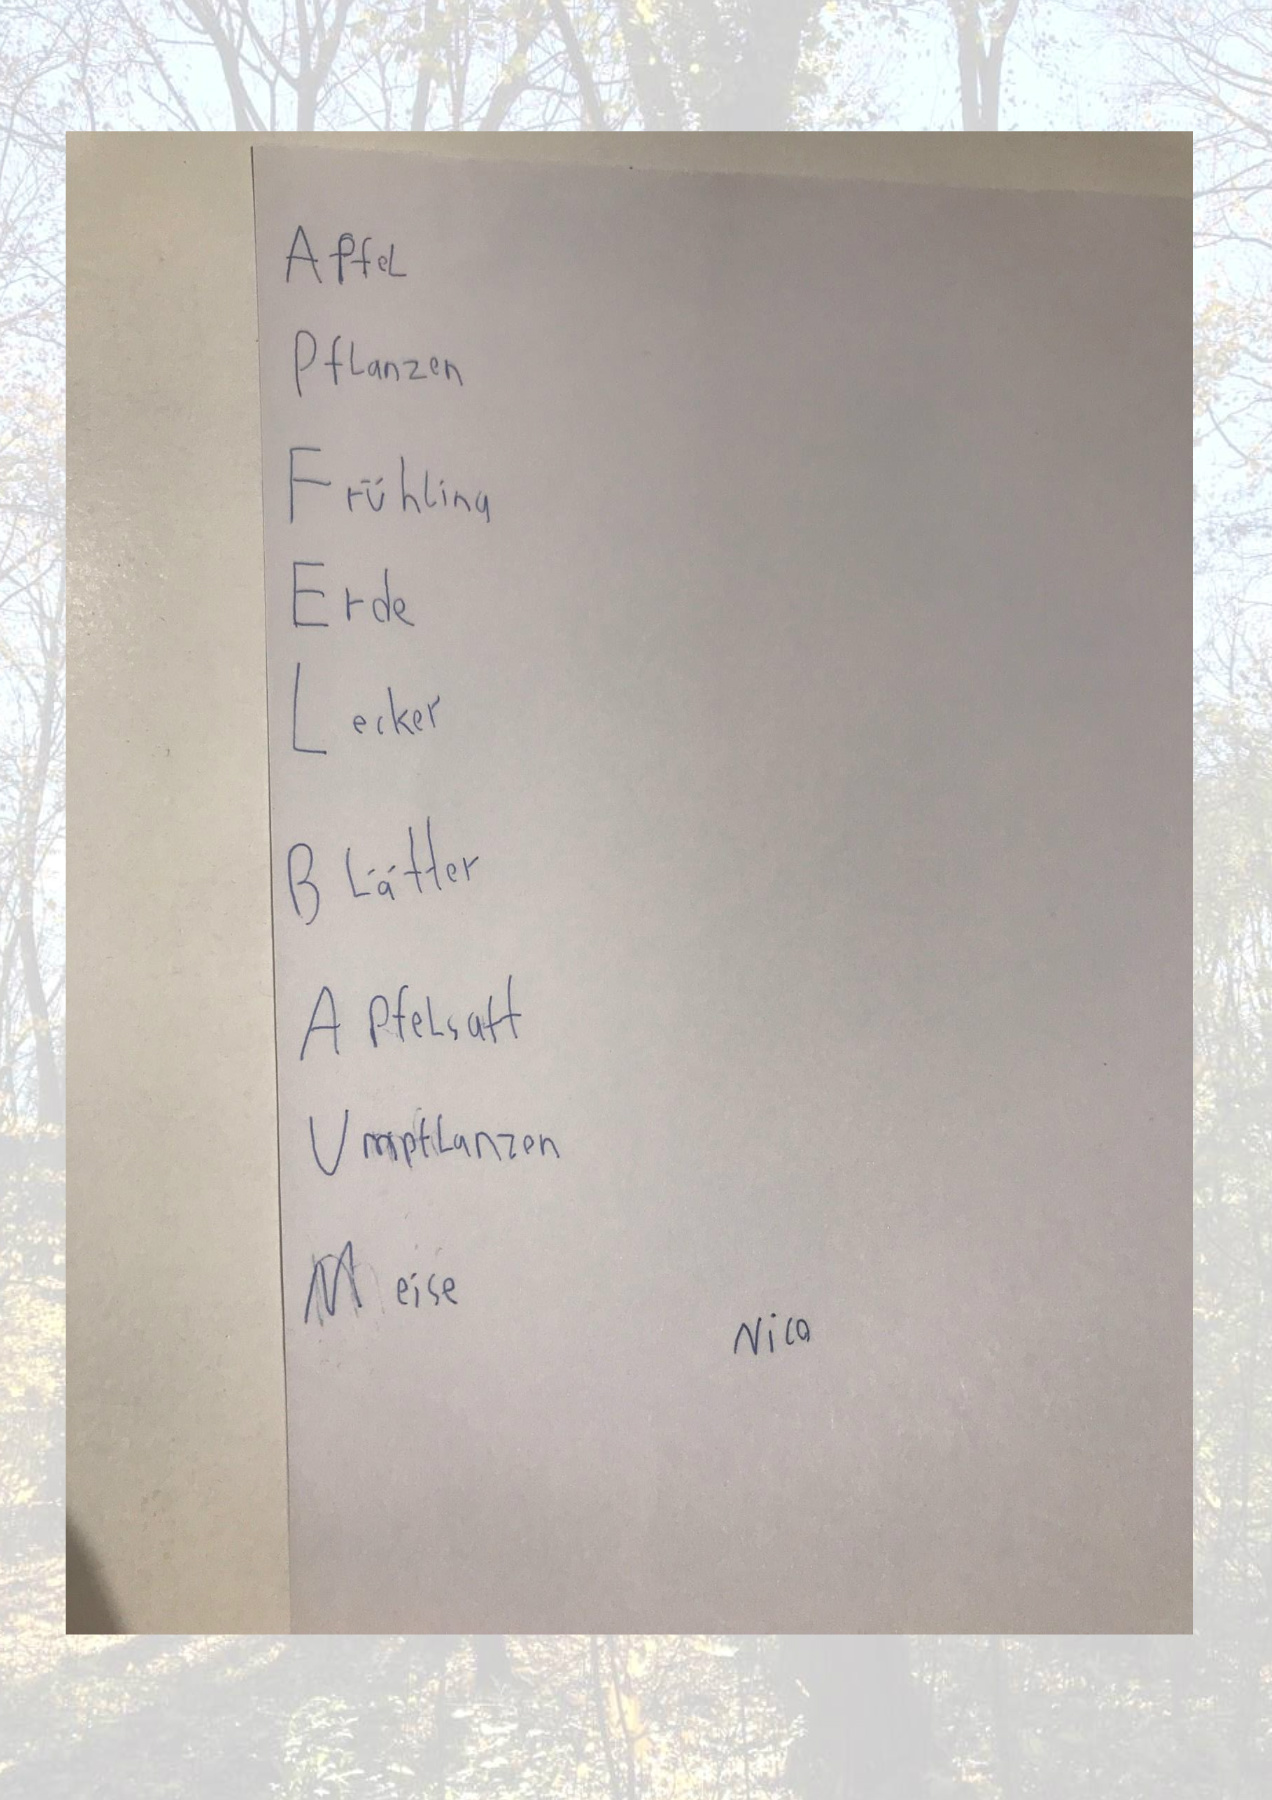 Apfel
Pflanzen
Frühling
Erde
Lecker
Blätter
Apfelsaft
Umpflanzen
Meise
Nico